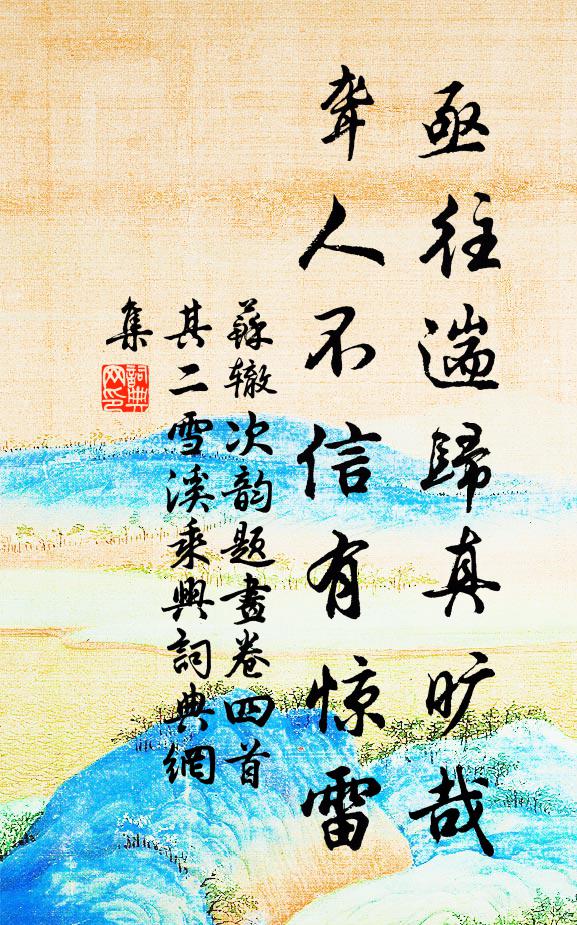 亟往遄歸真旷哉
聋人不信有惊雷
蘇辙次韵题畫卷四首
其二雪溪乘興詞典網
集
詞典網印